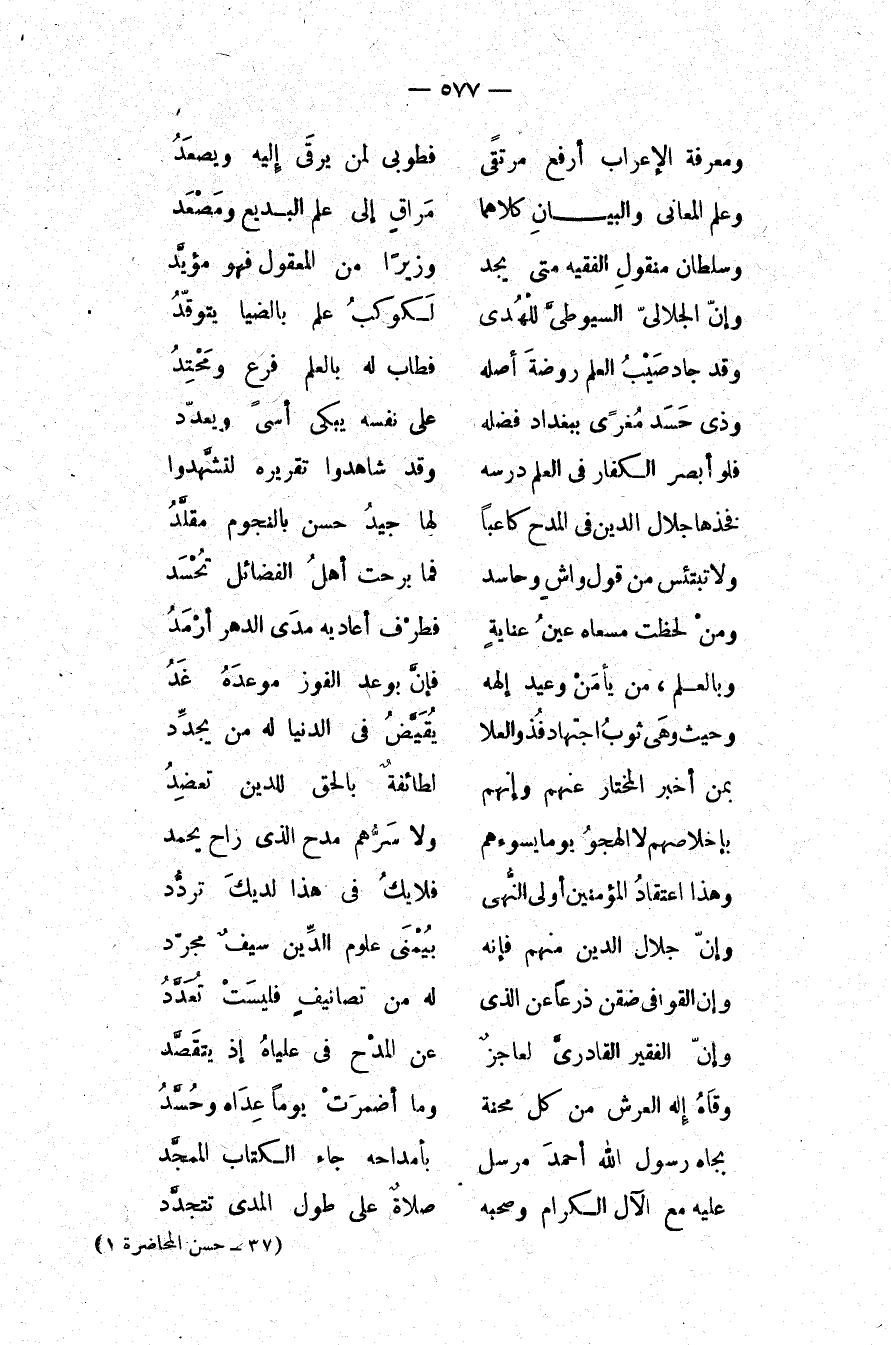 — ٥٧٧ —
ومعرفة الإعراب أرفع مرتقًى فطوبى لمن يرقَى إليه ويصعَدُ
وعلم المعانى والبيـــــان كلاهما مَراقٍ إلى علم البـديع ومَصْعَد
وسلطان منقولِ الفقيه متى يجد وزيرًا من المعقول فهو مؤيَّد
وإنّ الجلالىّ السيوطىَّ للْهُدى لَـكوكبُ علم بالضيا يتوقّدُ
وقد جاد صَيْبُ العلم روضةَ أصله فطاب له بالعلم فرع ومَحْتِدُ
وذى حَسَد مُغرًى ببغداد فضله على نفسه يبكى أسىً ويعدّد
فلو أبصر الـكفار فى العلم درسه وقد شاهدوا تقريره لتشهَّدوا
فخذها جلال الدين فى المدح كاعباً لها جيدُ حسن بالنجوم مقلَّدُ
ولا تبتئس من قول واشٍ وحاسد فما برحت أهلُ الفضائل تُحْسَد
ومنْ لحظت مسعاه عينُ عنايةٍ فطرْف أعاديه مدَى الدهر أرْمَدُ
وبالعـلم ، من يأمَنْ وعيد إلهه فإنَّ بوعد الفوز موعدَهُ غَدُ
وحيث وهَى ثوبُ اجتهاد فذُو العلا يُقَيِّضُ فى الدنيا له من يجدِّد
بمن أخبر المختار عنهم وإنهم لطائفةٌ بالحق للدين تعضِدُ
بإخلاصهم لا الهجوُ يوما يسوءهم ولا سَرَّهم مدح الذى راح يحمد
وهذا اعتقادُ المؤمنين أولى النُّهى فلا يكُ فى هذا لديكَ تردُّد
وإنّ جلال الدين منهم فإنه بيُمْنَى علوم الدِّين سيفٌ مجرّد
وإن القوافى ضقن ذرعاً عن الذى له من تصانيفٍ فليسَتْ تُعَدَّدُ
وإنّ الفقير القادرىَّ لعاجزٌ عن المدْح فى علياهُ إذ يتقَصَّد
وقاهُ إله العرش من كل محنة وما أضمرَتْ يوماً عِدَاه وحُسَّدُ
بجاه رسول الله أحمدَ مرسل بأمداحه جاء الـكتاب الممجَّد
عليه مع الآل الـكرام وصحبه صلاةٌ على طول المدى تتجدَّد
(٣٧ ــ حسن المحاضرة ١)